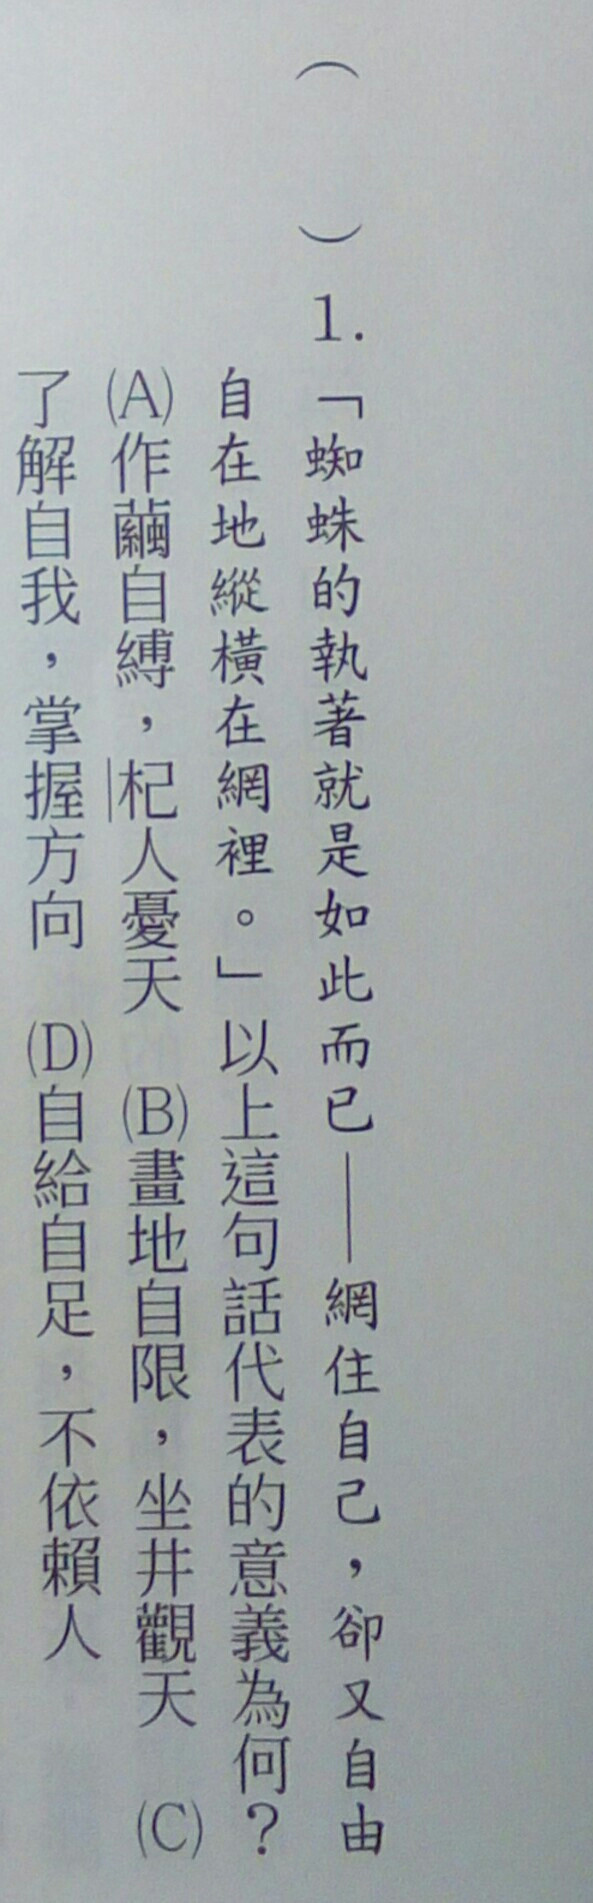 （　　）1.「蜘蛛的執著就是如此而已——網住自己，卻又自由
自在地縱橫在網裡。」以上這句話代表的意義為何？
(A)作繭自縛，杞人憂天　(B)畫地自限，坐井觀天　(C)
了解自我，掌握方向　(D)自給自足，不依賴人